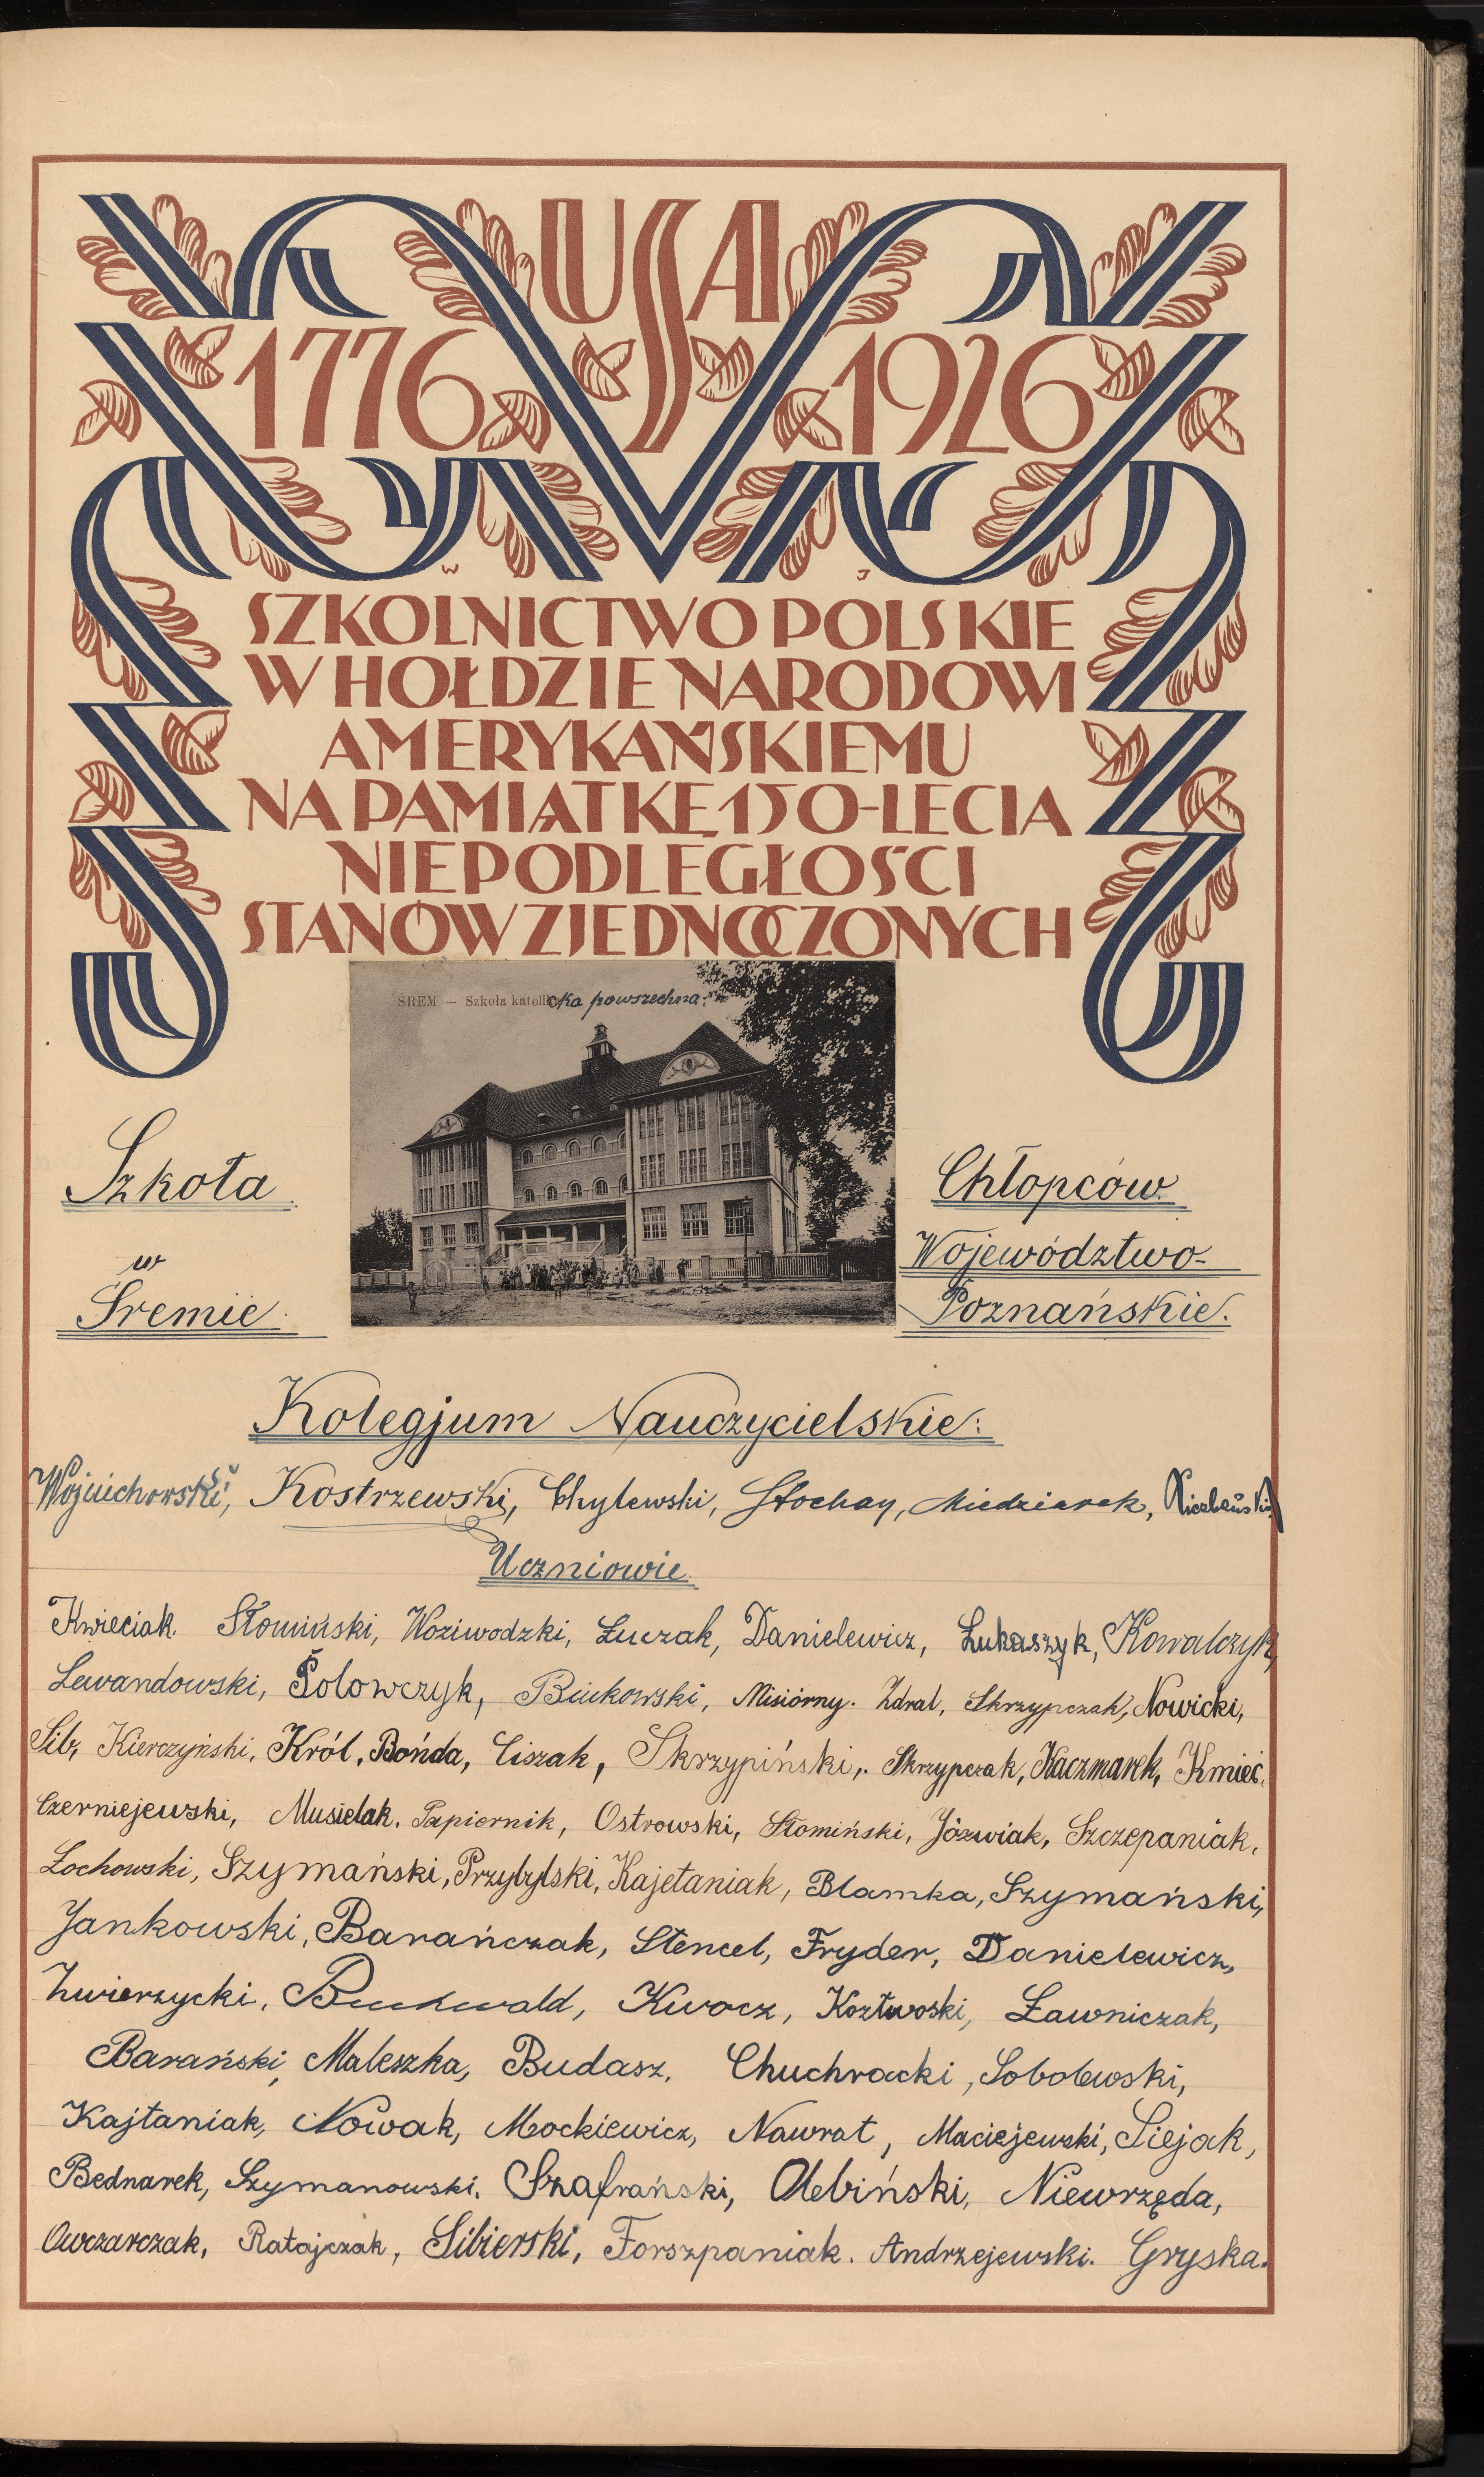 USA
1776 1926
W J
SZKOLNICTWO POLSKIE
W HOŁDZIE NARODOWI
AMERYKAŃSKIEMU
NA PAMIĄTKĘ 150-LECIA
NIEPODLEGŁOŚCI
STANÓW ZJEDNOCZONYCH
ŚREM — Szkoła katolicka powszechna.
Szkoła
w
Śremie
Chłopców
Województwo-
Poznańskie.
Kolegjum Nauczycielskie:
Wojciechowski, Kostrzewski, Chylewski, Stochay, Miedziarek,
Uczniowie
Kwieciak. Słomiński, Woziwodzki, Łuczak, Danielewicz, Łukaszyk, Kowalczyk,
Lewandowski, Połowczyk, Bukowski, Misiórny. Zdral, Skrzypczak, Nowicki,
Sib, Kierczyński, Król, Bońda, Ciszak, Skrzypiński, Skrzypczak, Kaczmarek, Kmieć,
Czerniejewski, Musielak. Papiernik, Ostrowski, Słomiński, Jóźwiak, Szczepaniak,
Żochowski, Szymański, Przybylski, Kajetaniak, Blamka, Szymański,
Jankowski, Barańczak, Stencel, Fryder, Danielewicz,
Zwierzycki, Buchwald, Kwocz, Kozłwoski, Ławniczak,
Barański, Maleszka, Budasz, Chuchracki, Sobolewski,
Kajtaniak, Nowak, Mockiewicz, Nawrat, Maciejewski, Siejak,
Bednarek, Szymanowski, Szafrański, Olebiński, Niewrzęda,
Owczarczak, Ratajczak, Sibierski, Forszpaniak. Andrzejewski. Gryska.